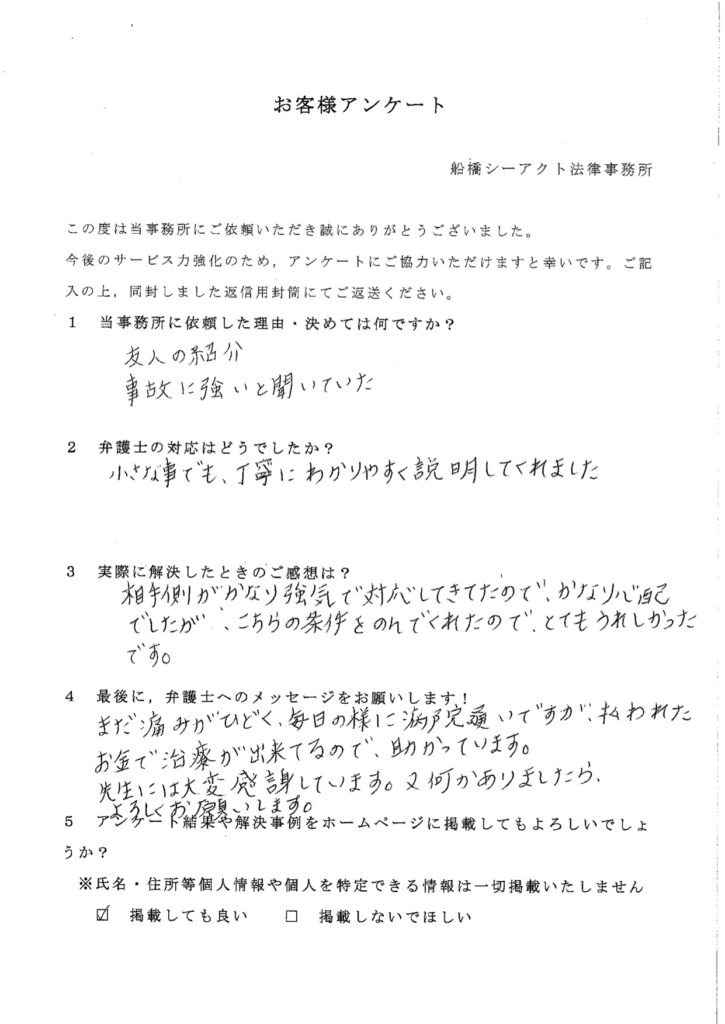 お客様アンケート
船橋シーアクト法律事務所
この度は当事務所にご依頼いただき誠にありがとうございました。
今後のサービス力強化のため，アンケートにご協力いただけますと幸いです。ご記
入の上，同封しました返信用封筒にてご返送ください。
1 当事務所に依頼した理由・決めては何ですか？
友人の紹介
事故に強いと聞いていた
2 弁護士の対応はどうでしたか？
小さな事でも、丁寧にわかりやすく説明してくれました
3 実際に解決したときのご感想は？
相手側がかなり強気で対応してきてたので、かなり心配
でしたが、こちらの条件をのんでくれたので、とてもうれしかった
です。
4 最後に，弁護士へのメッセージをお願いします！
まだ痛みがひどく、毎日の様に病院通いですが、払われた
お金で治療が出来てるので、助かっています。
先生には大変感謝しています。又何かありましたら、
よろしくお願いします。
5 アンケート結果や解決事例をホームページに掲載してもよろしいでしょ
うか？
※氏名・住所等個人情報や個人を特定できる情報は一切掲載いたしません
☑ 掲載しても良い □ 掲載しないでほしい